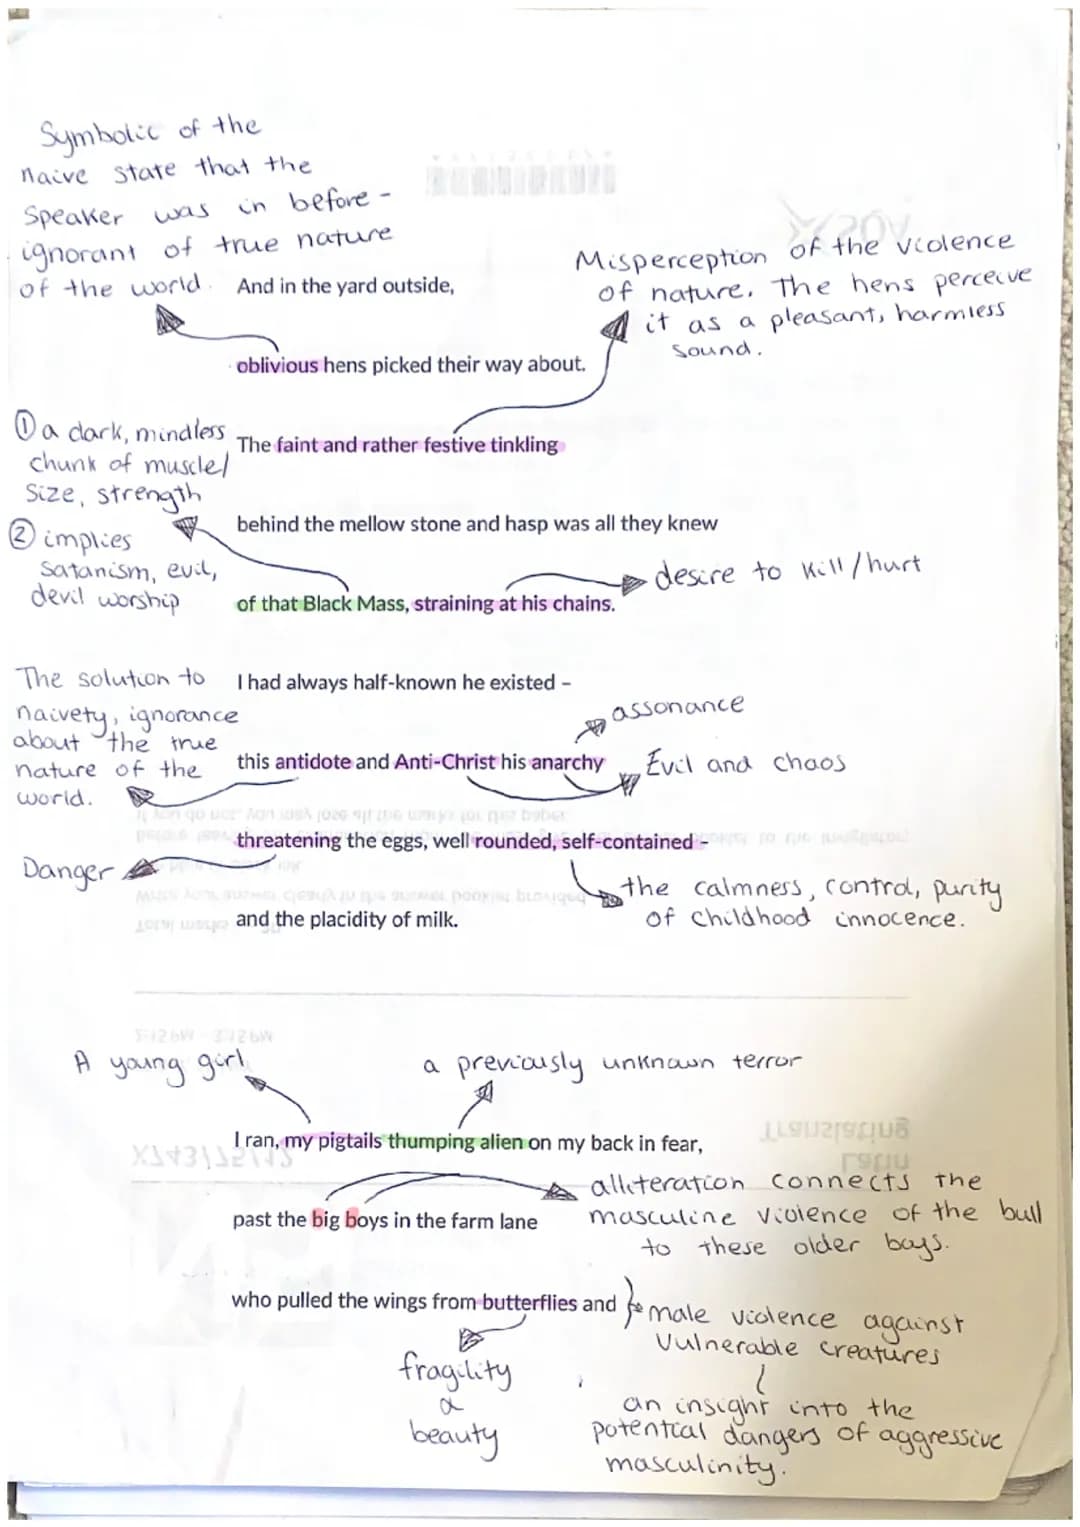 Symbolic of the
naive state that the
speaker was in before -
ignorant of true nature
of the world.
And in the yard outside,
Misperception of the violence
of nature. The hens perceive
it as a pleasant, harmless
sound.
oblivious hens picked their way about.
① a dark, mindless
chunk of muscle/
size, strength
② implies
satanism, evil,
devil worship
The faint and rather festive tinkling
behind the mellow stone and hasp was all they knew
desire to kill/hurt
of that Black Mass, straining at his chains.
The solution to
naivety, ignorance
about the true
nature of the
world.
I had always half-known he existed –
assonance
this antidote and Anti-Christ his anarchy
Evil and chaos
threatening the eggs, well rounded, self-contained -
Danger
the calmness, control, purity
of childhood innocence.
and the placidity of milk.
A young girl
a previously unknown terror
I ran, my pigtails thumping alien on my back in fear,
alliteration connects the
masculine violence of the bull
to these older boys.
past the big boys in the farm lane
who pulled the wings from butterflies and
male violence against
vulnerable creatures
fragility
&
beauty
an insight into the
potential dangers of aggressive
masculinity.
AQA
Translation
Latin